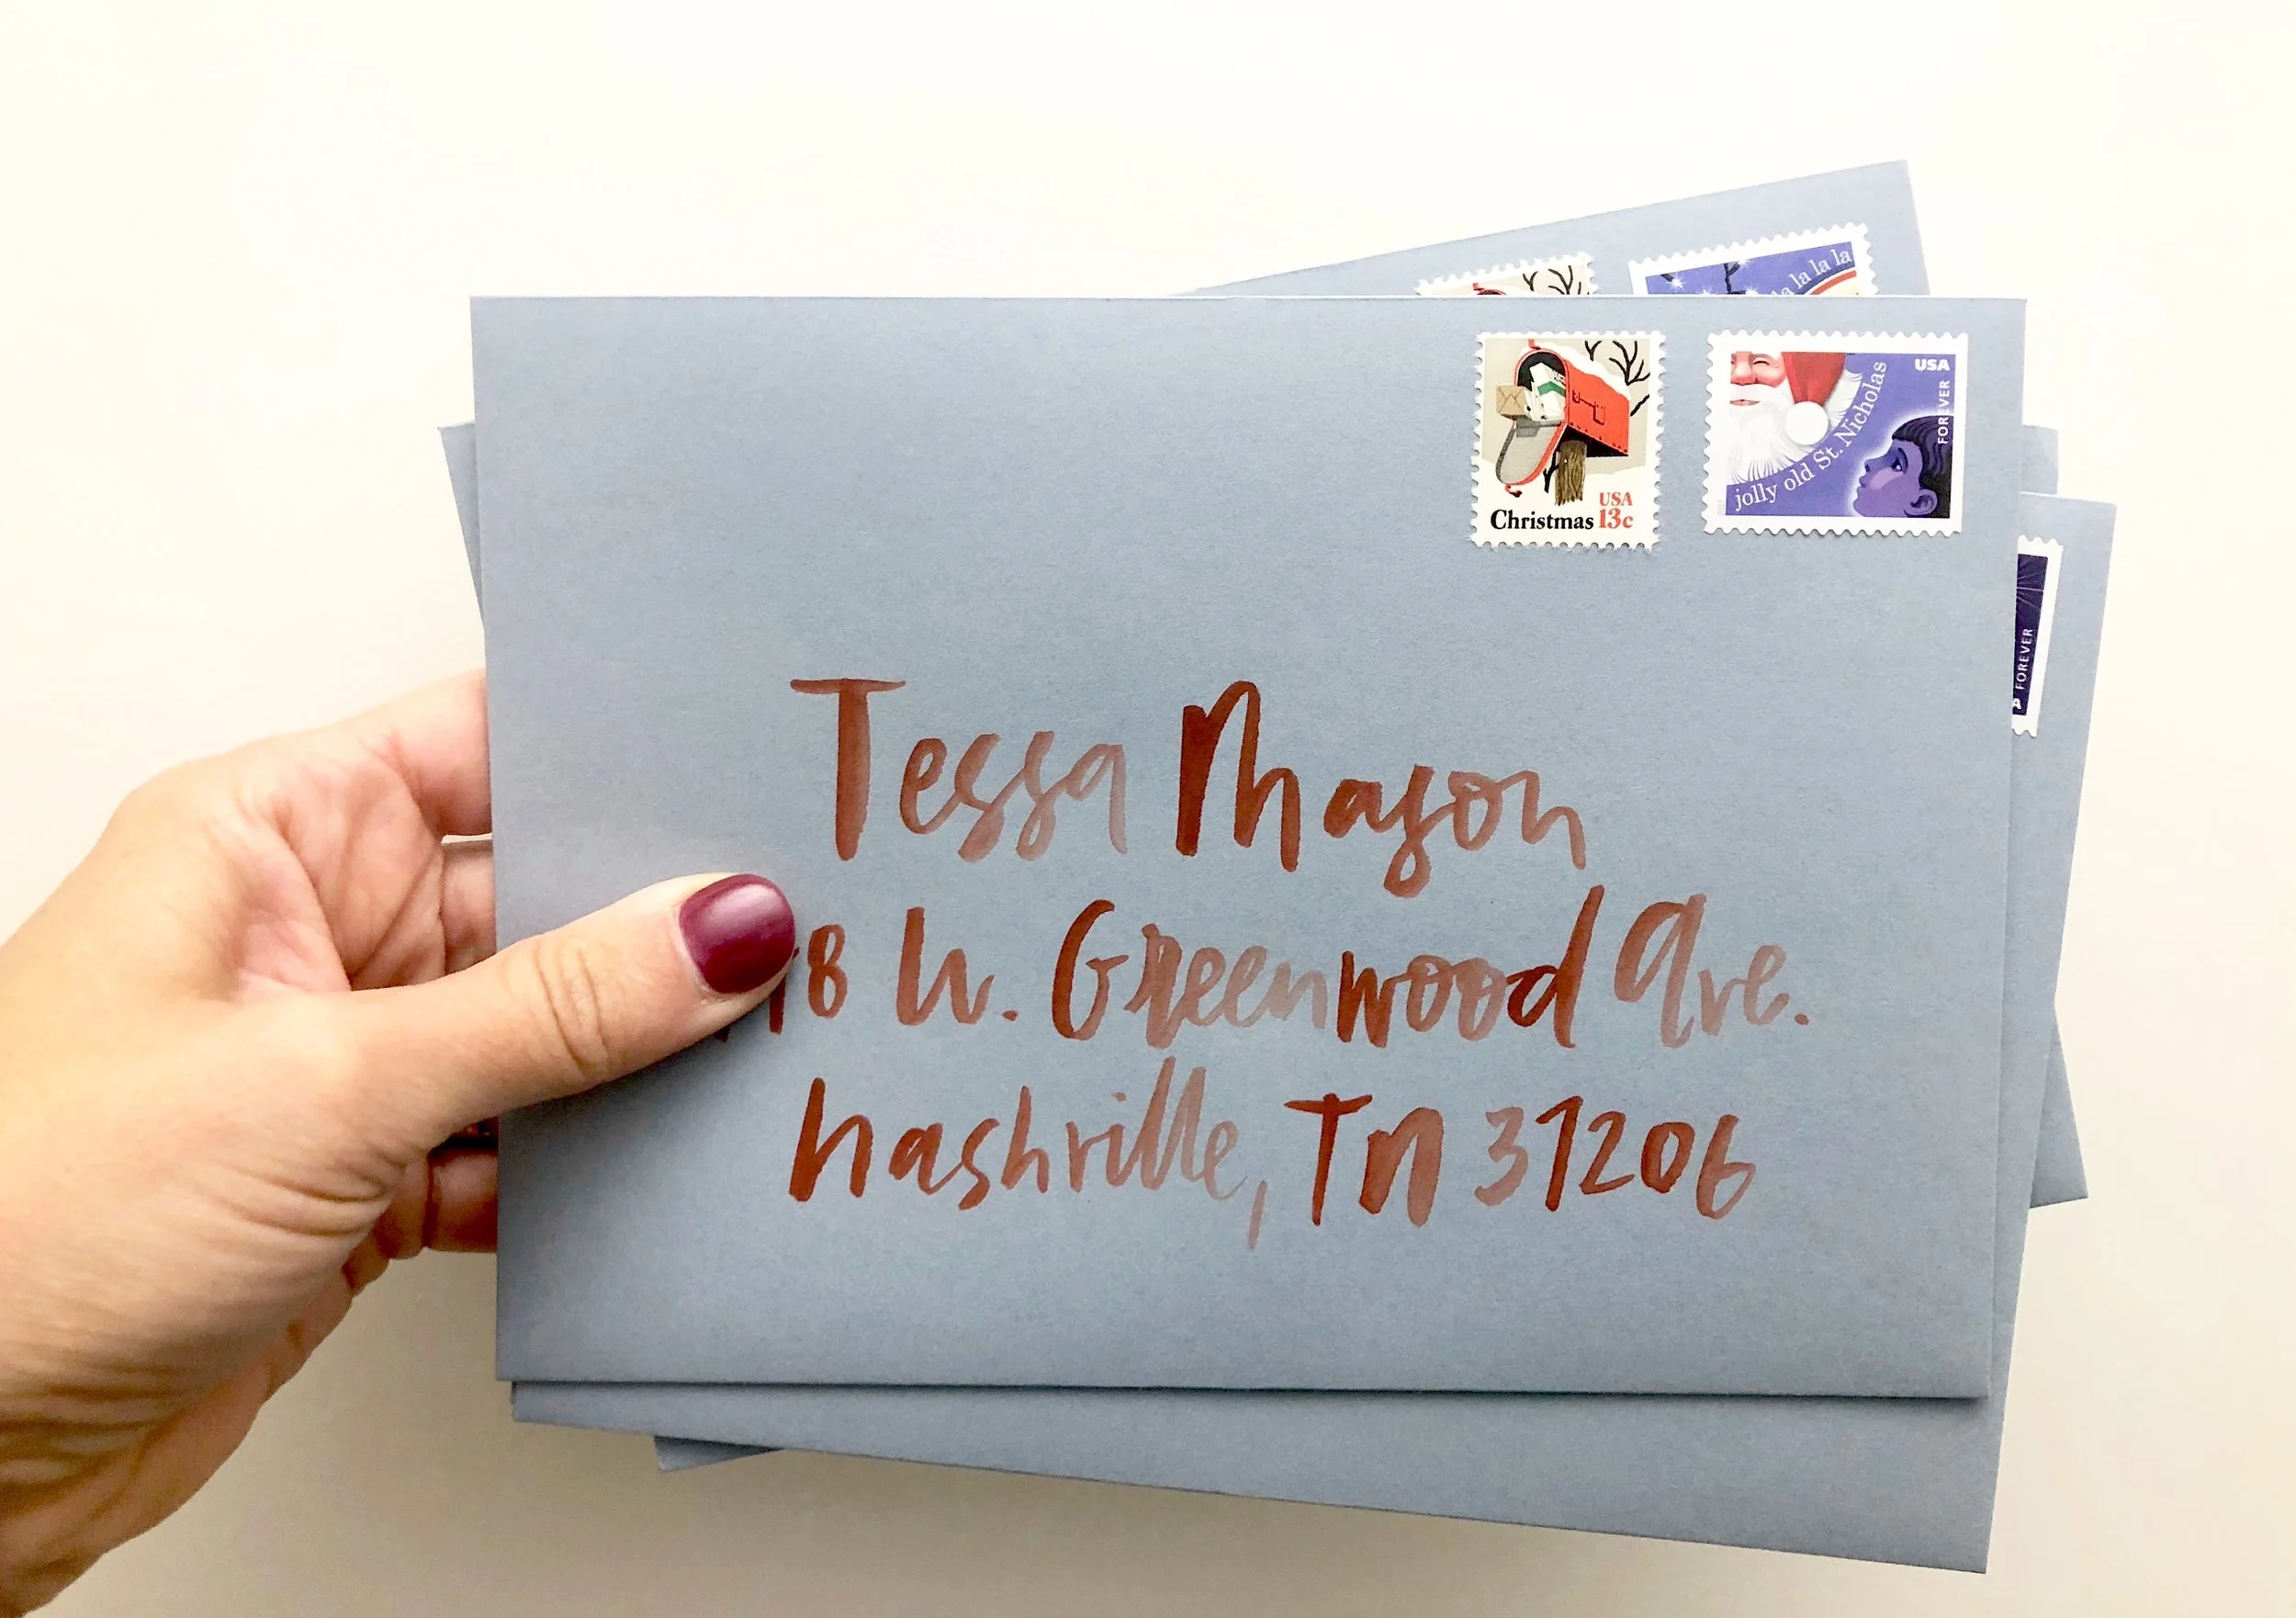 la la la la
USA
Christmas 13c
USA
FOREVER
jolly old St. Nicholas
FOREVER
Tessa Mason
W. Greenwood Ave.
Nashville, TN 37206